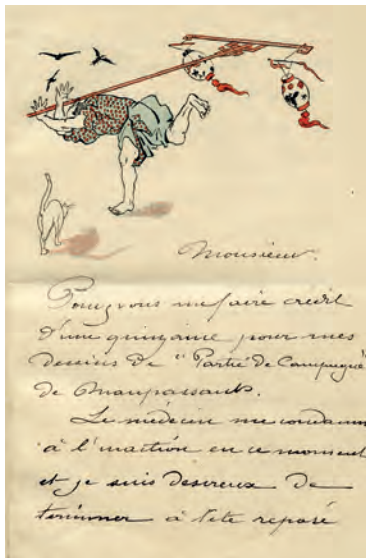 Monsieur.
Pouvez vous me faire crédit
d'une quinzaine pour mes
dessins de "Partie de Campagne"
de Maupassant.
Le médecin me condamne
à l'inaction en ce moment
et je suis désireux de
terminer à tête reposé